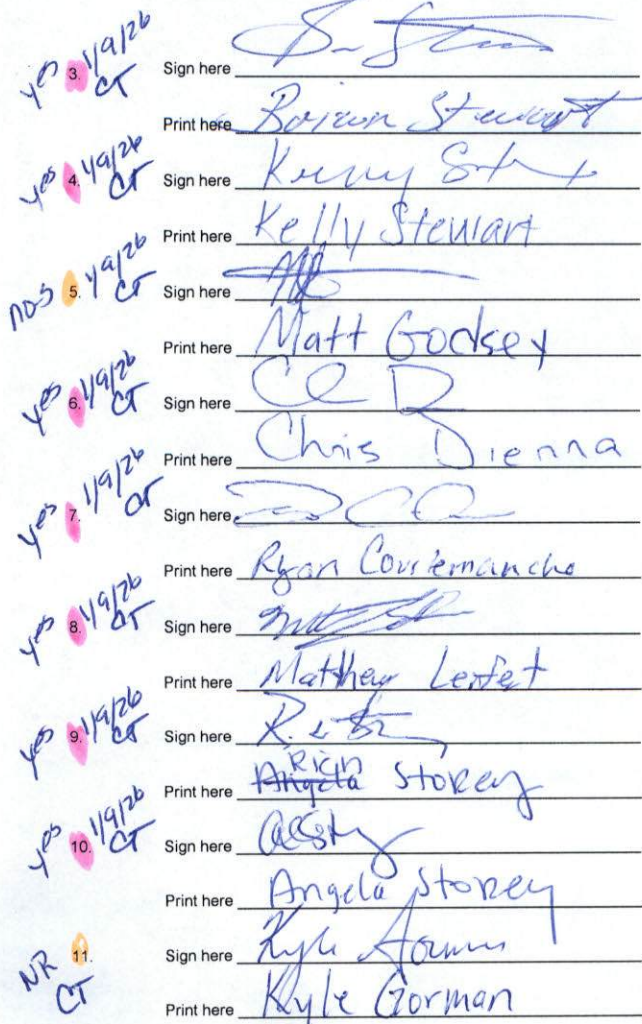 yes 3. 1/9/26 CT Sign here
Print here Stewart
yes 4. 1/9/26 CT Sign here
Print here Kelly Stewart
nos 5. 1/9/26 CT Sign here
Print here Matt Godsey
yes 6. 1/9/26 CT Sign here
Print here Chris Dienna
yes 7. 1/9/26 CT Sign here
Print here Ryan Courtemanche
yes 8. 1/9/26 CT Sign here
Print here Matthew
yes 9. 1/9/26 CT Sign here
Print here Angela Rich Storey
yes 10. 1/9/26 CT Sign here
Print here Angela Storey
NR 11. CT Sign here Kyle
Print here Kyle Gorman